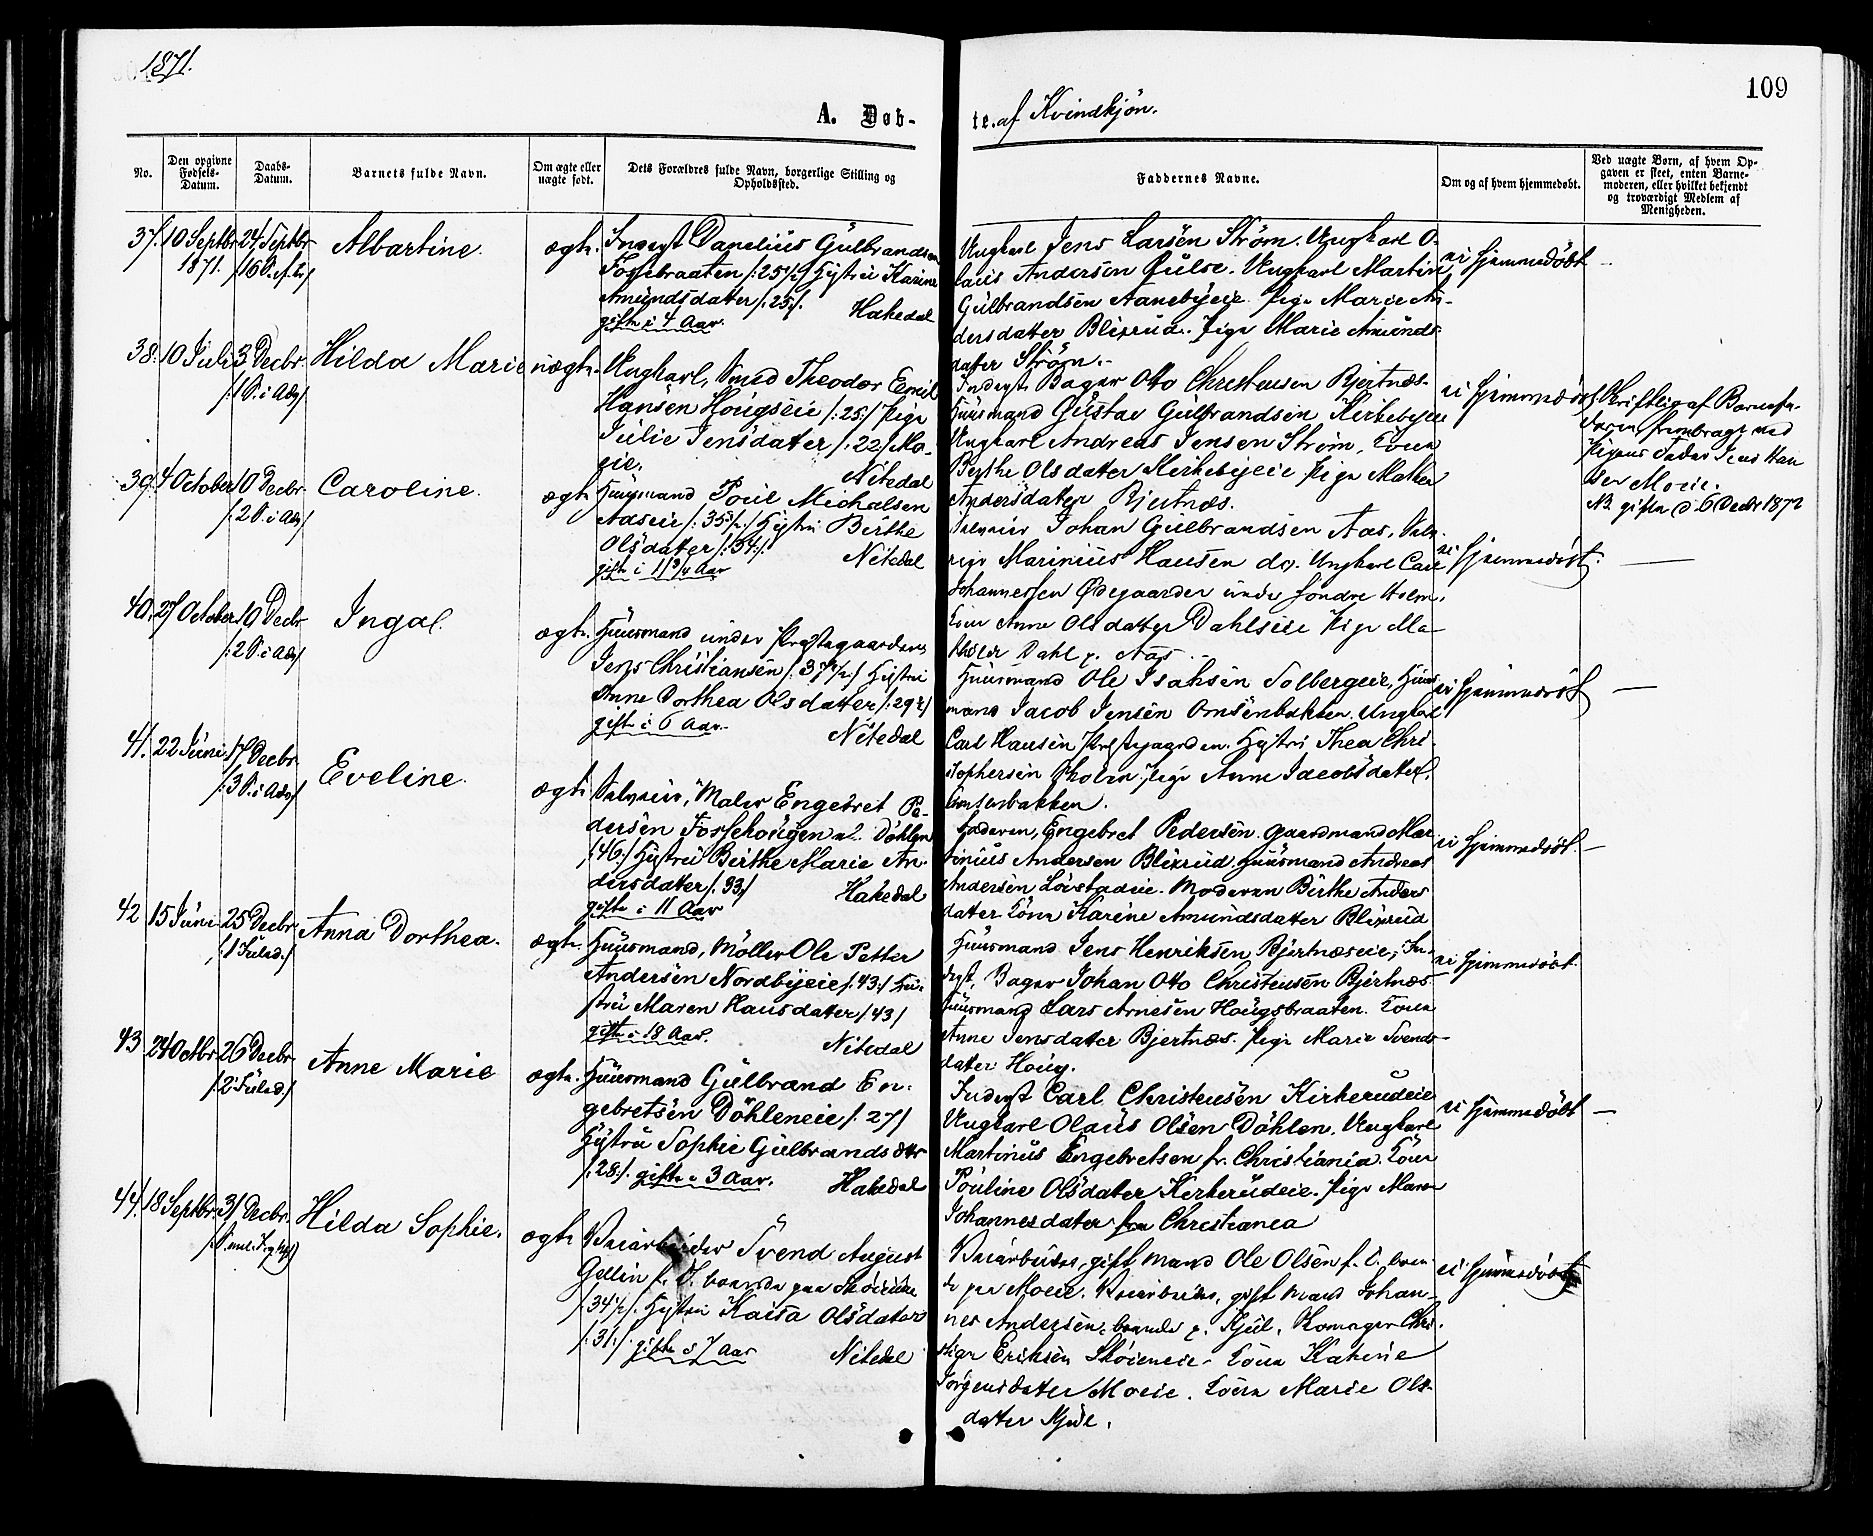 1871.
109
A. Døb-
te. af Kvindkjøn.
No.
Den opgivne Fødsels-Datum.
Daabs-Datum.
Barnets fulde Navn.
Om ægte eller uægte født.
Dets Forældres fulde Navn, borgerlige Stilling og Opholdssted.
Faddernes Navne.
Om og af hvem hjemmedøbt.
Ved uægte Børn, af hvem Op-
gaven er skeet, enten Barne-
moderen, eller hvilket bekjendt
og troværdigt Medlem af
Menigheden.
37. 10 Septbr 1871. 24 Septbr Albartine. ægte.
Inderst Danelius Gulbrandsen
Fossebraaten /:25½/ Hustru Karine
Amundsdatter /:25:/. Hakedal
gifte i 4 Aar.
Ungkarl Jens Larsen Strøm. Ungkarl O-
laus Andersen Ungkarl Martin
Gulbrandsen Aanebyeie. Pige Marie An-
dersdatter Blixrud. Pige Marie Amunds-
datter Strøm.
ei hjemmedöbt
38. 10 Juli 3 Decbr /:1 S. i Adv/ Hilda Marie uægte.
Ungkarl, Smed Theodor Emil
Hansen Hougseie /:25:/ Pige
Julie Jensdatter /:22/ Mo-
eie. Nitedal
Inderst Bager Otto Christensen Bjertnæs.
Huusmand Gustav Gulbrandsen Kirkebyeie
Ungkarl Andreas Jensen Strøm, Kona
Berthe Olsdatter Kirkebyeie Pige Mathea
Andersdatter Bjertnæs.
ei hjemmedöbt
Skriftlig af Barnefa-
deren, frembragt ved
Pigens Fader Jens Han
sen Moeie.
NB. gifte d. 6 Decbr 1872
39. 4 October 10 Decbr /:2 S. i Adv/ Caroline. ægte
Huusmand Poul Michalsen
Aaseie /:35½/ Hustru Birthe
Olsdatter /:34:/. Nitedal
gift i 11¾ Aar
Johan Gulbrandsen Aas,
Marinius Hansen do. Ungkarl Carl
Johannessen Ødegaarden under søndre Holm.
Kone Anne Olsdatter Dahlseie Pige Ma-
Dahl p. Aas.
ei hjemmedöbt.
40. 27 October 10 Decbr /:2 S. i Adv/ Inga. ægte.
Huusmand under Præstegaarden
Jens Christiansen /:37½/ Hustru
Anne Dorthea Olsdatter /:29½/
gifte i 6 Aar. Nitedal
Huusmand Ole Isaksen Solbergeie, Huus-
mand Jacob Jensen Ornsenbakken. Ungkarl
Carl Hansen Præstegaarden. Hustru Thea Chri-
stophersen Pige Anne Jacobsdatter,
ei hjemmedöbt
41. 22 Juni 17 Decbr /:3 S. i Adv/ Eveline. ægte
Selveier, Maler Engebret Pe-
dersen Fossehougen u. Döhlen
/:46:/ Hustru Birthe Marie An-
dersdatter /:33/ Hakedal
gifte i 11 Aar
Faderen, Engebret Pedersen. Gaardmand Mar-
tinius Andersen Blixrud, Huusmand Andreas
Andersen Moderen Birthe Anders
datter. Kona Karine Amundsdatter Blixrud
ei hjemmedöbt.
42 15 Juni 25 Decbr /:1 Juled:/ Anna Dorthea. ægte.
Huusmand, Møller Ole Petter
Andersen Nordbyeie /:43:/ Hu-
stru Maren Hansdatter /43/
gifte i 18 Aar. Nitedal
Huusmand Jens Henriksen Bjertnæseie, In-
derst, Bager Johan Otto Christensen Bjertnæs.
Huusmand Lars Arnesen Hougsbraaten. Kona
Anne Jensdatter Bjertnæs. Pige Marie Svends-
datter Houg.
ei hjemmedöbt.
43 24 Octbr. 26 Decbr /:2 Juled:/ Anne Marie ægte.
Huusmand Gulbrand En-
gebretsen Döhleneie /:27/
Hustru Sophie Gulbrandsdtr
/:28:/. gifte i 3 Aar. Hakedal
Inderst Carl Christensen Kirkerudeie
Ungkarl Olaus Olsen Döhlen. Ungkarl
Martinius Engebretsen fr. Christiania. Kona
Pouline Olsdatter Kirkerudeie. Pige Maren
Johannesdatter fra Christiania
ei hjemmedöbt
44. 18 Septbr. 31 Decbr. Hilda Sophie. ægte
Veiarbeider Svend August
Gellin f. S. boende paa Skøieneie
/:34½/. Hustru Kaisa Olsdatter
/:31:/. gifte i 7 Aar Nitedal
Veiarbeider, gift Mand Ole Olsen f. S. boen-
de paa Moeie. Veiarbeider, gift Mand Johan-
nes Andersen, boende p. Kjul,
Eriksen Skøieneie. Kona Katrine
Jørgensdatter Moeie. Kona Marie Ols-
datter Kjul.
ei hjemmedöbt